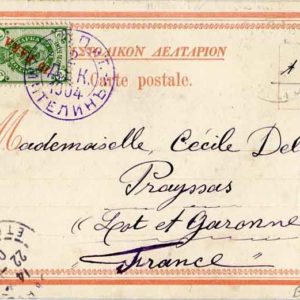 ΣΤΟΛΙΚΟΝ ΔΕΛΤΑΡΙΟΝ
Carte postale.
1904
МИТЕЛИНЪ
Mademoiselle, Cécile Del
Prayssas
(Lot et Garonne
France